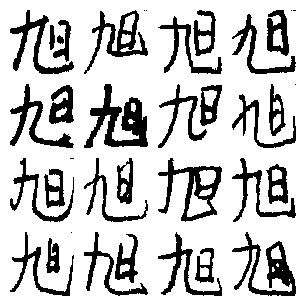 旭旭旭旭
旭旭旭旭
旭旭旭旭
旭旭旭旭